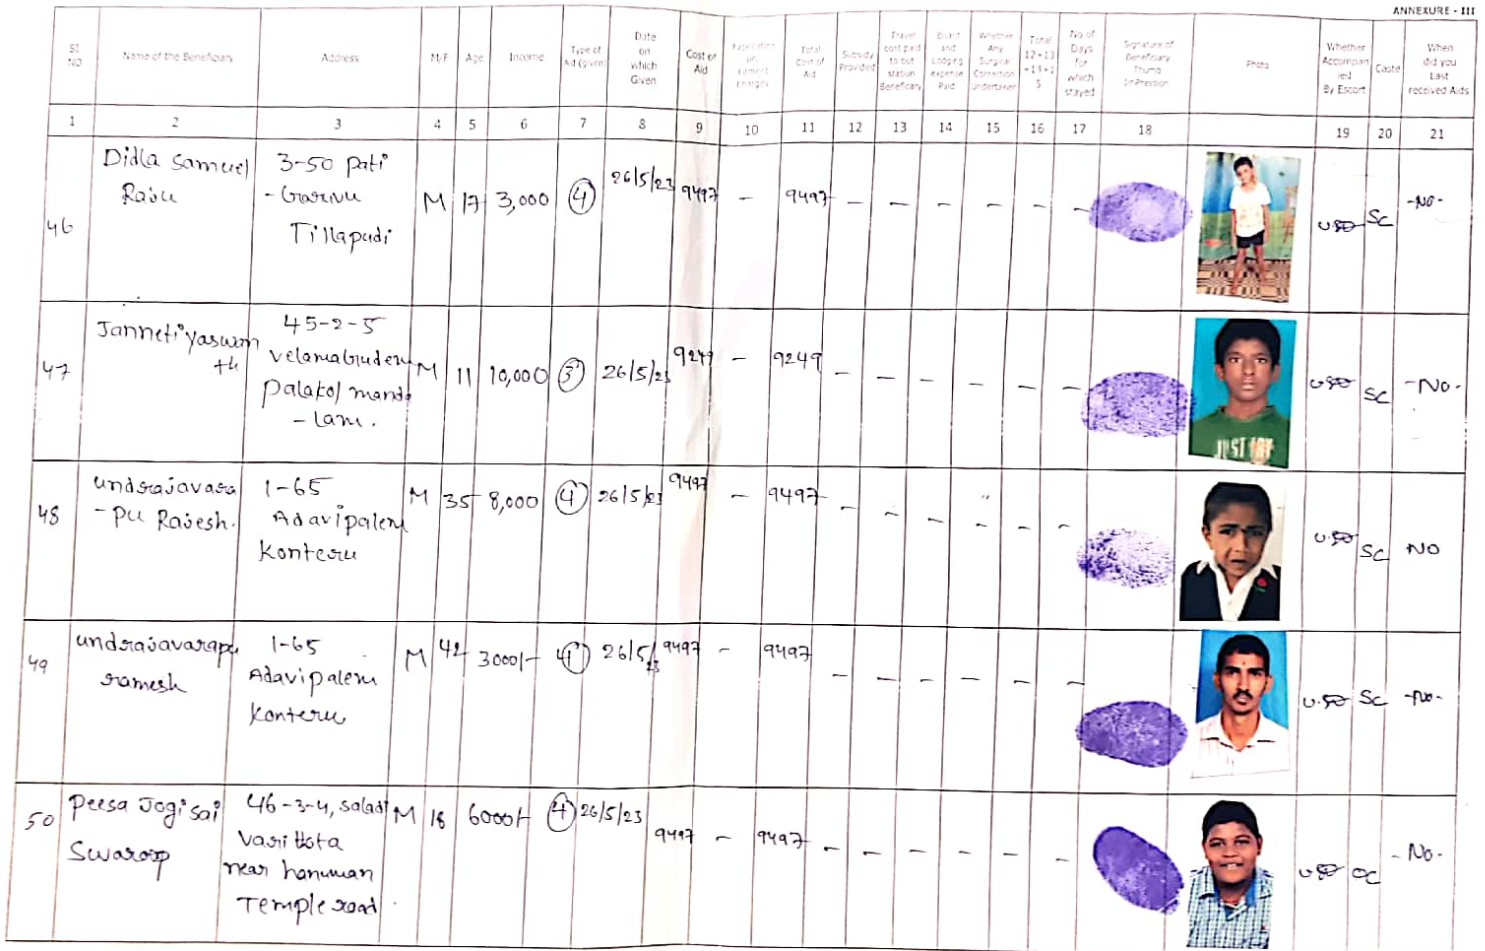 ANNEXURE - III
Sl. NO
Name of the Beneficiary
Address
M/F
Age
Income
Type of Aid (given)
Date on which Given
Cost of Aid
Total Cost of Aid
Subsidy Provided
Travel cost paid to out station Beneficiary
Board and Lodging expense Paid
Whether Any Surgical Correction Undertaken
Total 12+13+14+15
No of Days for which stayed
Signature of Beneficiary Thumb Impression
Photo
Whether Accompanied By Escort
Caste
When did you Last received Aids
1 2 3 4 5 6 7 8 9 10 11 12 13 14 15 16 17 18 19 20 21
46
Didla Samuel
Raju
3-50 Pati
- Garuvu
Tillapudi
M 17 3,000 4 26/5/23 9497 - 9497 - - - - - -
SC -No-
47
Janneti Yaswan
th
45-2-5
Velamagudem
Palakol manda
- lam.
M 11 10,000 3 26/5/23 9249 - 9249 - - - - - -
SC -No-
48
undrajavara
- pu Rajesh.
1-65
Adavipalem
Konteru
M 35 8,000 4 26/5/23 9497 - 9497 - - - - - -
SC NO
49
undrajavarapu
ramesh
1-65
Adavipalem
Konteru
M 42 3000/- 4 26/5/23 9497 - 9497 - - - - - -
SC -No-
50
Peesa Jogi Sai
Swaroop
46-3-4, Saladi
Vari thota
near hanuman
Temple road.
M 18 6000/- 4 26/5/23 9497 - 9497 - - - - - -
OC -No-
JUST